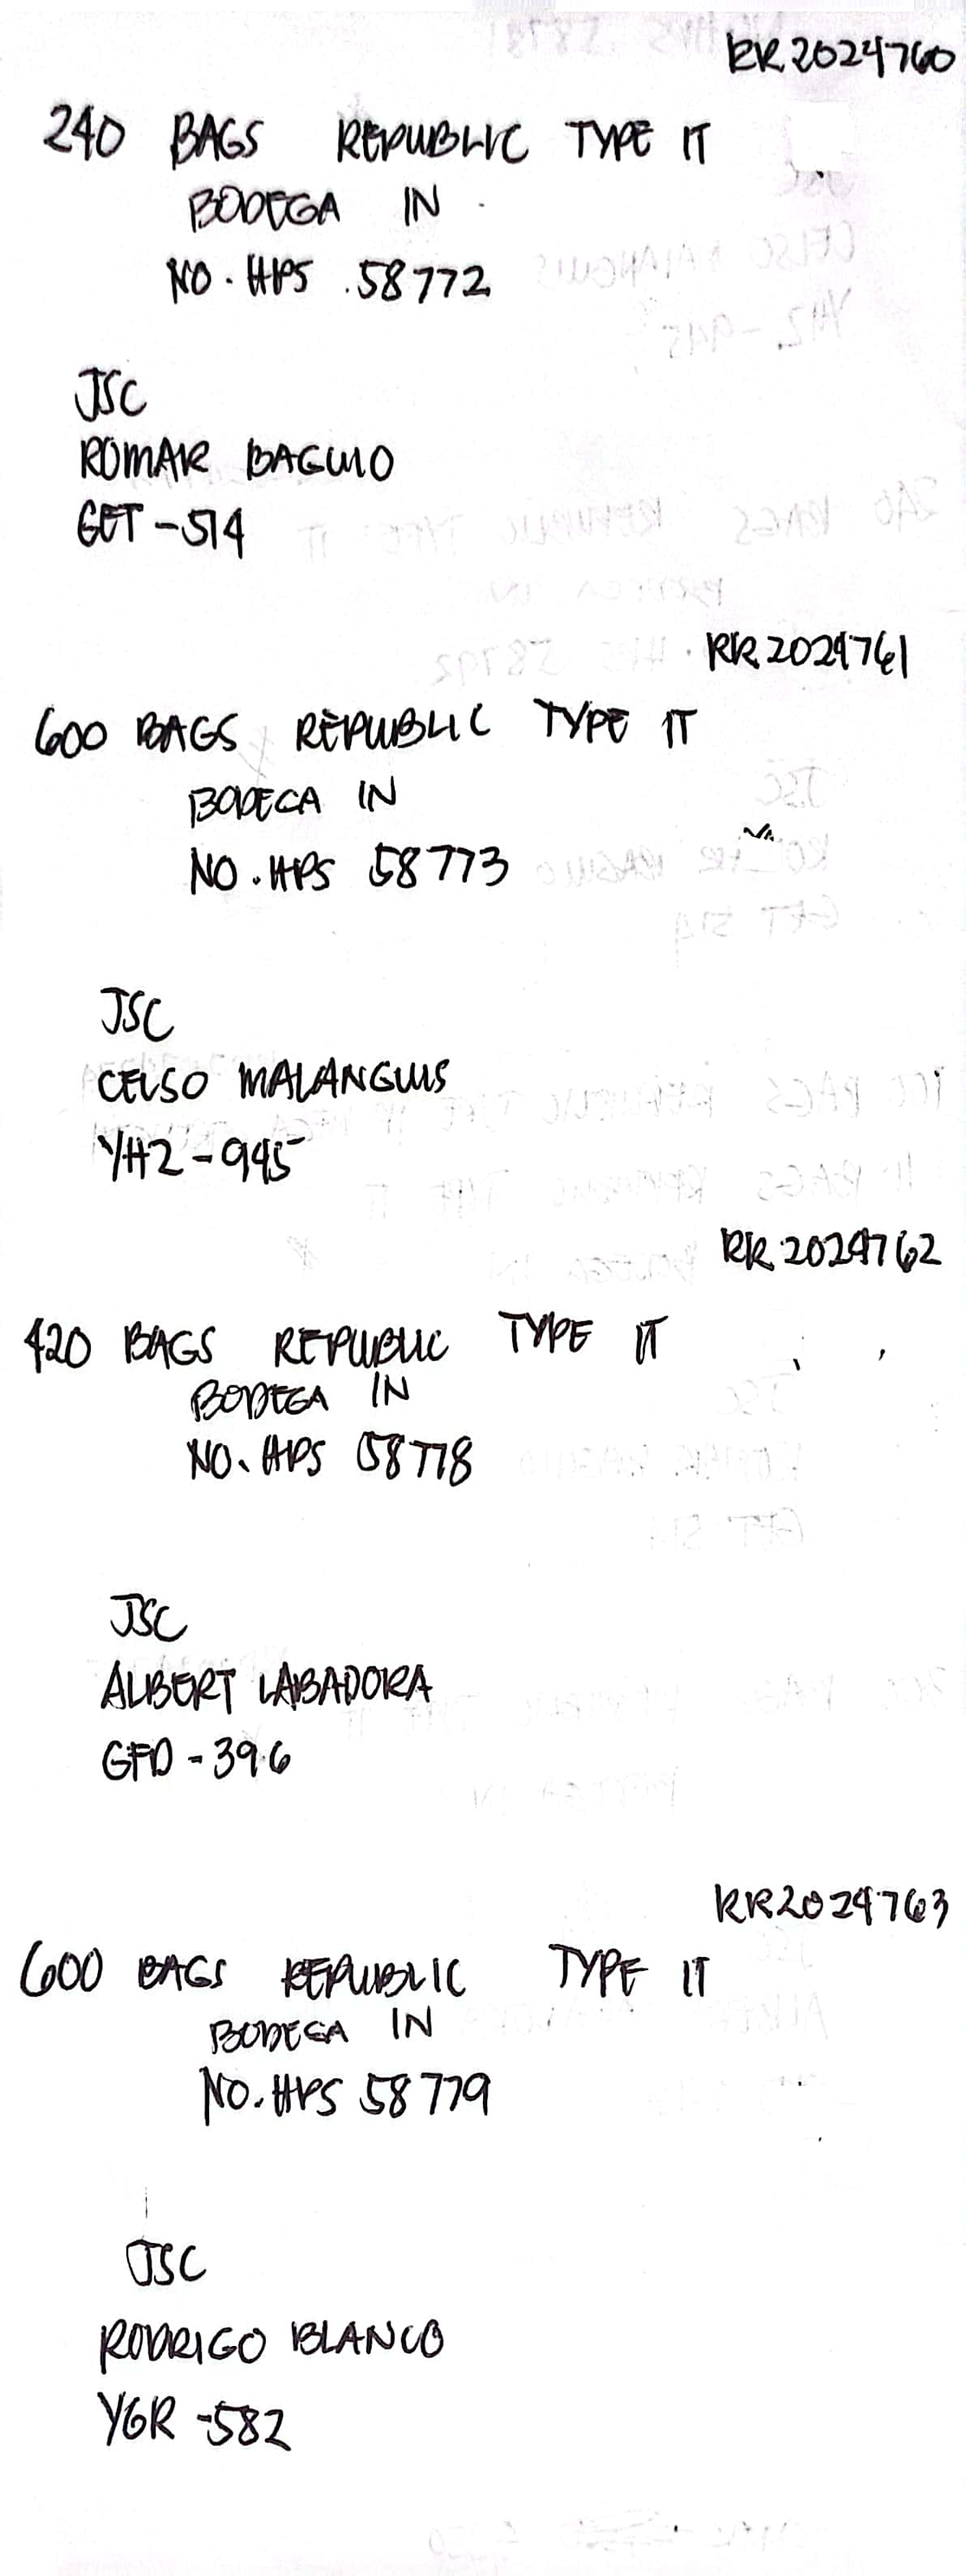 RR2024760
240 BAGS REPUBLIC TYPE 1T
BODEGA IN
NO. HPS 58772
JSC
ROMAR BAGUIO
GET-514
RR2024761
600 BAGS REPUBLIC TYPE 1T
BODEGA IN
NO. HPS 58773
JSC
CELSO MALANGUIS
YHZ-945
RR2024762
420 BAGS REPUBLIC TYPE 1T
BODEGA IN
NO. HPS 58778
JSC
ALBERT LABADORA
GFD-396
RR2024763
600 BAGS REPUBLIC TYPE 1T
BODEGA IN
NO. HPS 58779
JSC
RODRIGO BLANCO
YGR-582